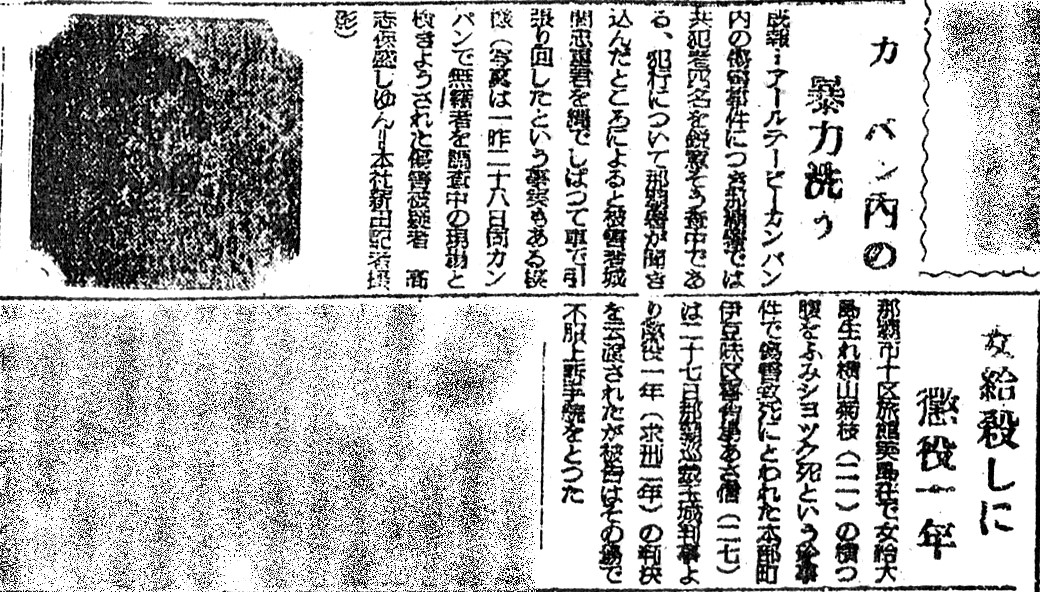 カバン内の
暴力洗う
既報=アールテーピーカンパン
内の傷害事件につき那覇署では
共犯者四名を鋭意そう査中であ
る、犯行について那覇署が聞き
込んだところによると被害者城
間忠重君を縄でしばつて車で引
張り回したという事実もある模
様(写真は一昨二十八日同カン
パンで無籍者を調査中の現場と
検きようされた傷害被疑者 高
志保盛しゆん=本社新田記者撮
影)
女給殺しに
懲役一年
那覇市十区旅館実島荘で女給大
島生れ横山菊枝(二一)の横つ
腹をふみシヨツク死という惨事
件で傷害致死にとわれた本部町
伊豆味区 あさ信(二七)
は二十七日那覇巡裁玉城判事よ
り懲役一年(求刑二年)の判決
を云渡されたが被告はその場で
不服上訴手続をとつた